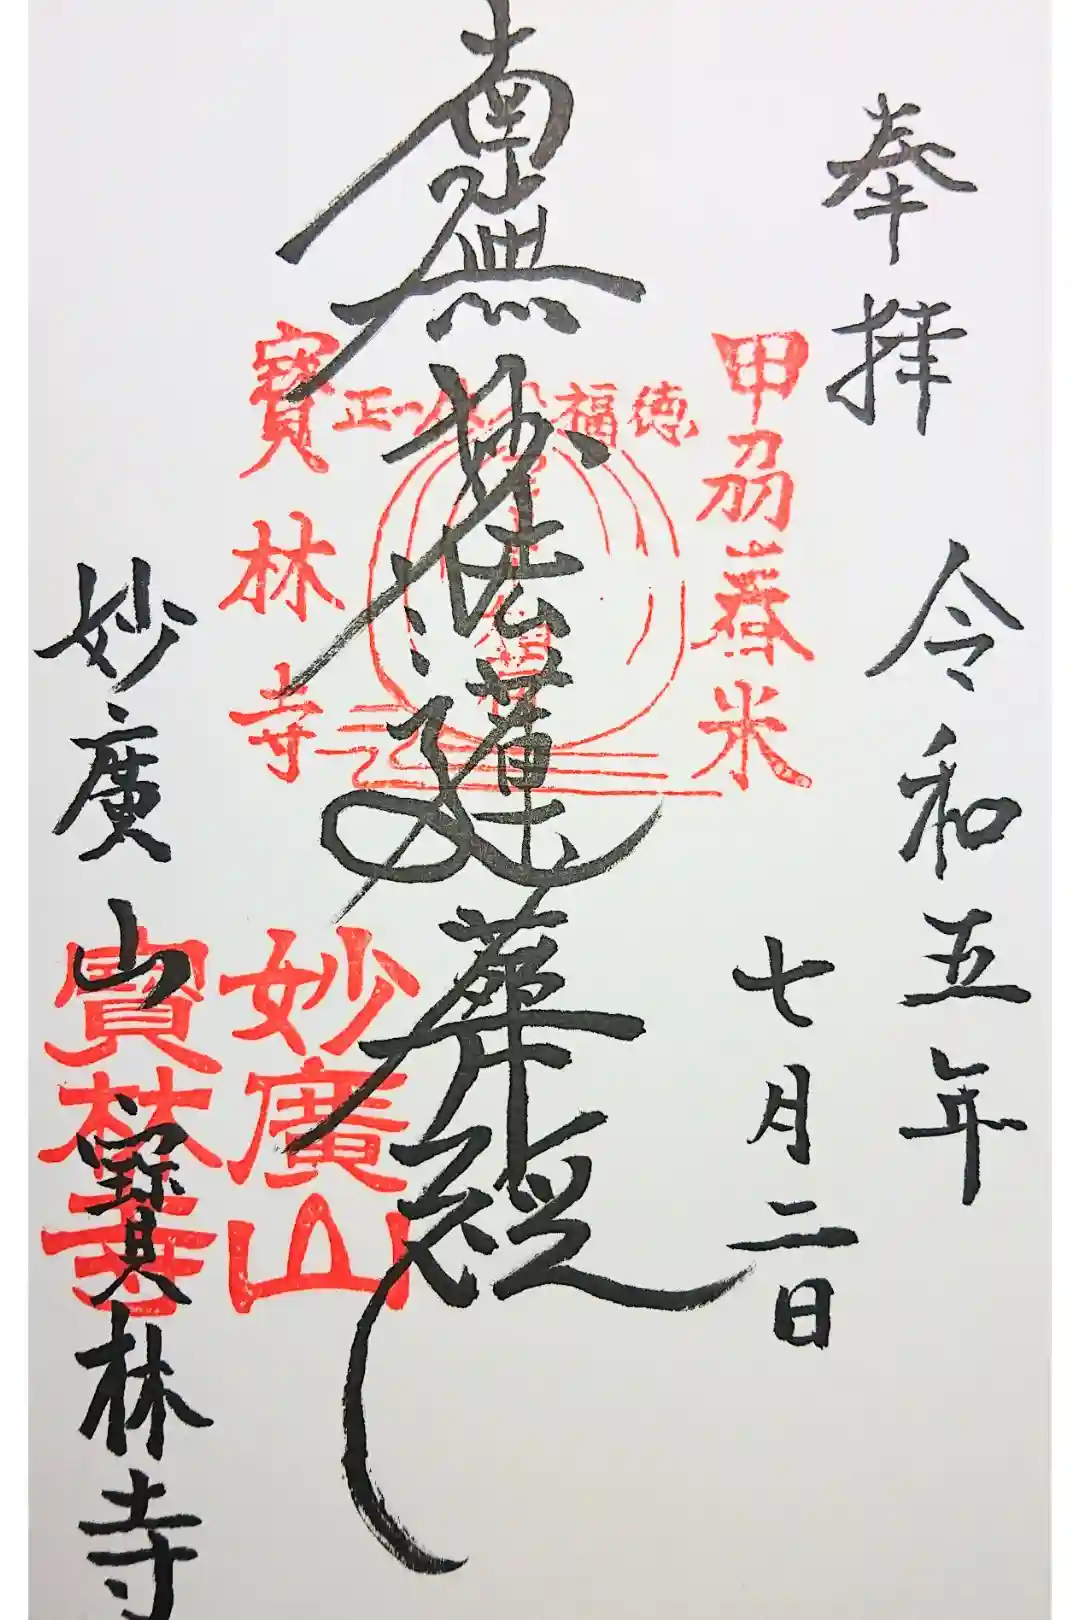 奉拝
令和五年
七月二日
甲刕春米
徳福
正一
南無妙法蓮華経
寶林寺
妙廣山
寶林寺
妙廣山寶林寺